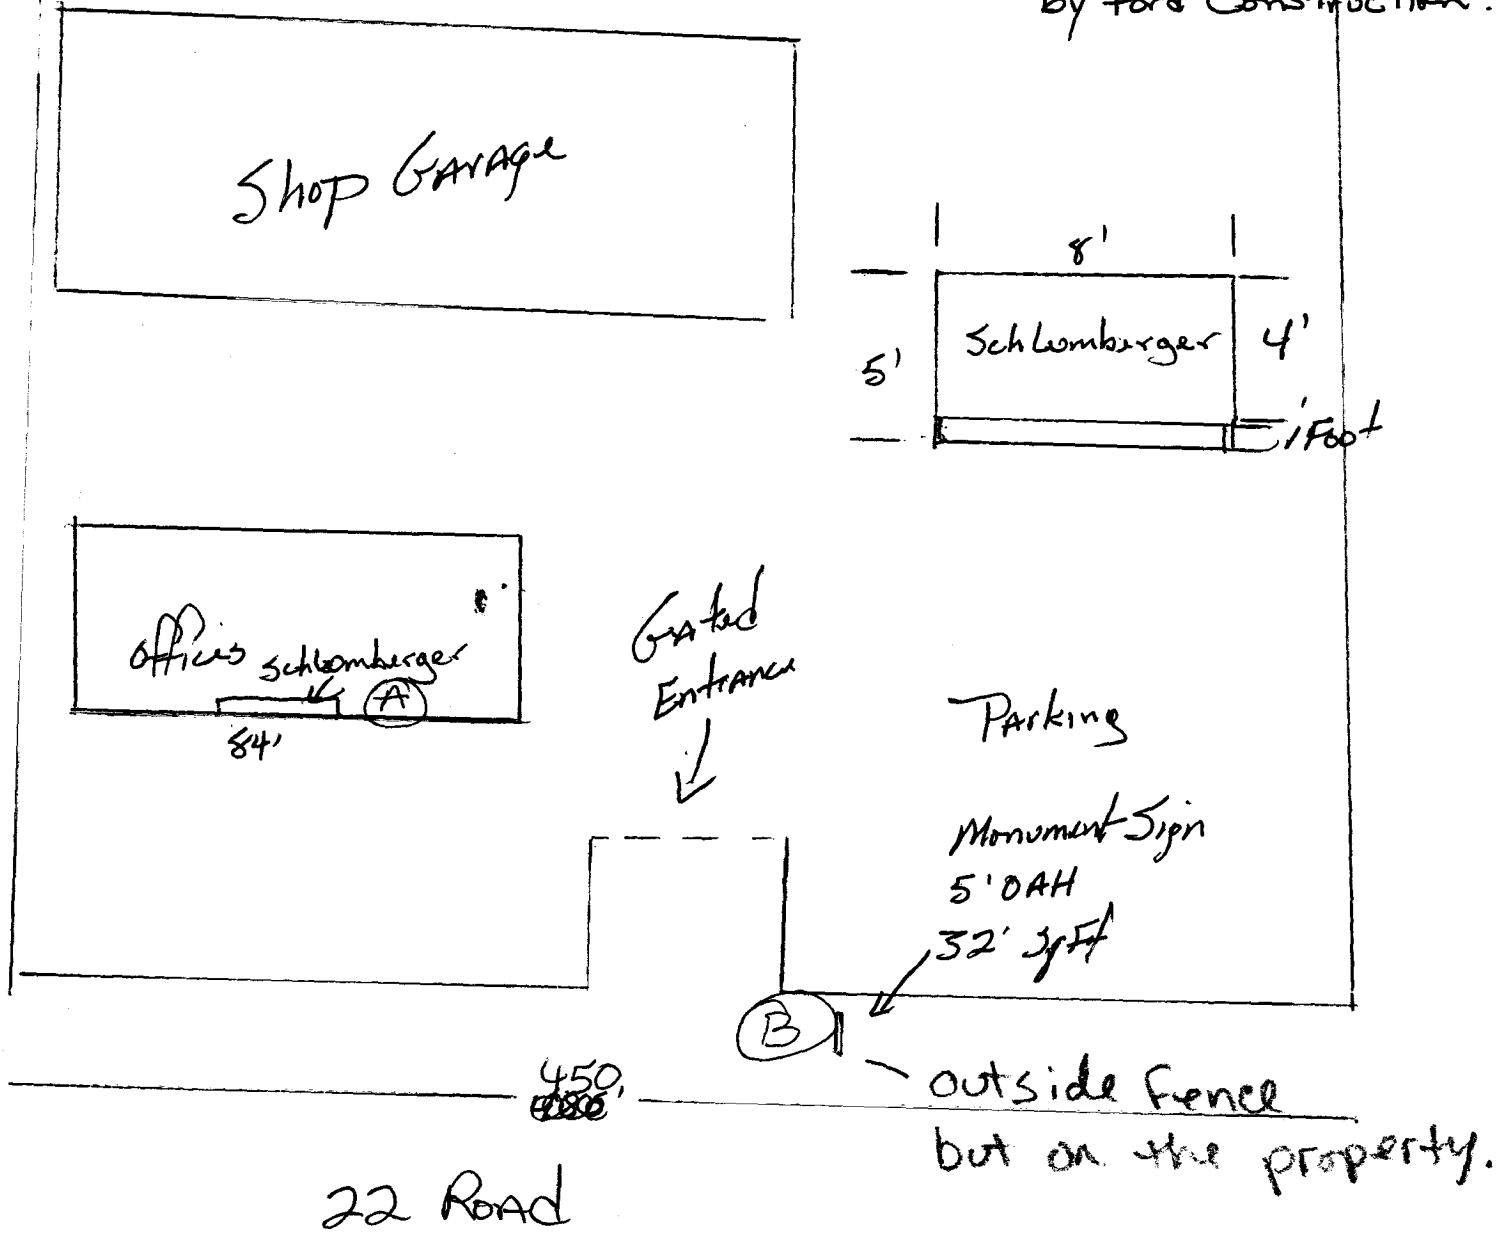 by Ford Construction.
Shop Garage
8'
5'
Schlumberger
4'
1' Foot
Offices
Schlumberger
A
84'
Gated
Entrance
Parking
Monument Sign
5' OAH
32' SqFt
B
450'
outside Fence
but on the property.
22 Road